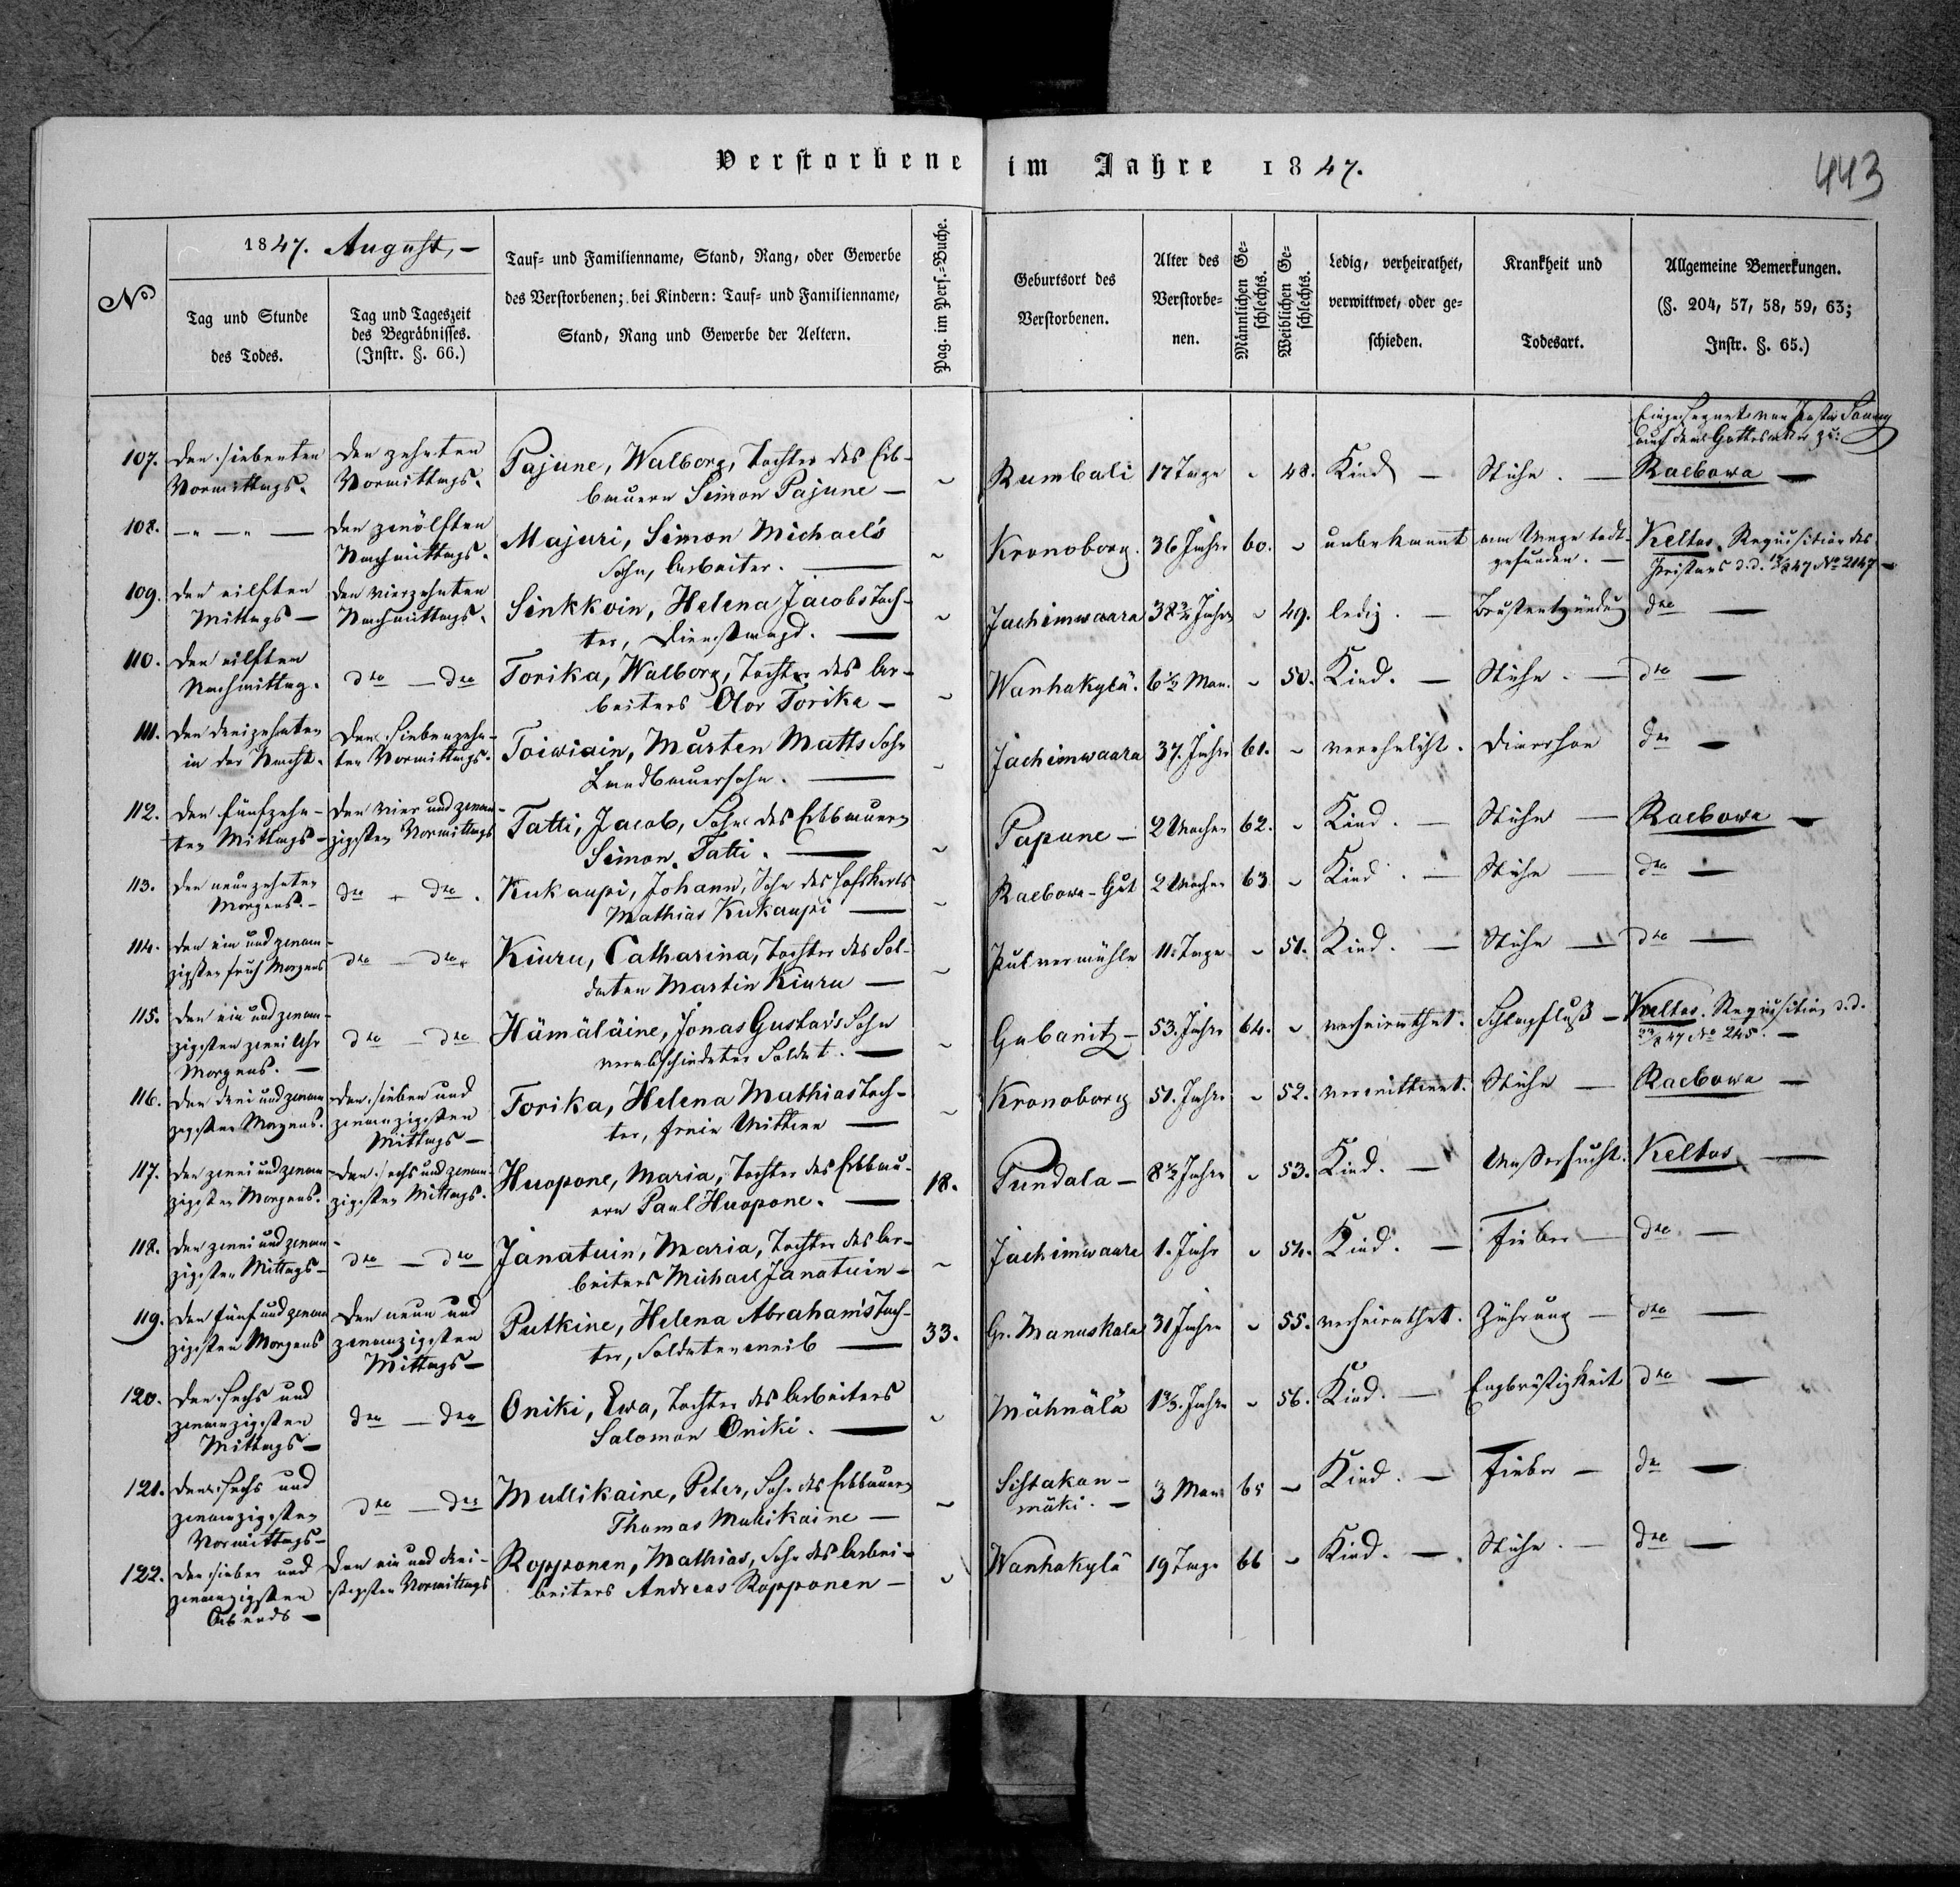 Verstorbene im Jahre 1847.
443
No
1847. August, –
Tag und Stunde
des Todes.
Tag und Tageszeit
des Begräbnisses.
(Instr. §. 66.)
Tauf= und Familienname, Stand, Rang, oder Gewerbe
des Verstorbenen; bei Kindern: Tauf= und Familienname,
Stand, Rang und Gewerbe der Aeltern.
Pag. im Pers.=Buche.
Geburtsort des
Verstorbenen.
Alter des
Verstorbe=
nen.
Männlichen Ge=
schlechts.
Weiblichen Ge=
schlechts.
Ledig, verheirathet,
verwittwet, oder ge=
schieden.
Krankheit und
Todesart.
Allgemeine Bemerkungen.
(§. 204, 57, 58, 59, 63;
Instr. §. 65.)
107. den siebenten
Vormittags.
den zehnten
Vormittags.
Pajune, Walborg, Tochter des Erb-
bauern Simon Pajune –
Rumbali 17 Tage 48. Kind – Ruhr. –
Eingesegnet von Pastor
auf dem Gottesacker zu:
Raebowa –
108. – " – " –
den zwölften
Nachmittags.
Majuri, Simon Michael's
Sohn, Arbeiter. –
Kronoborg. 36 Jahre 60. unbekannt am Wege todt-
gefunden. –
Keltos. Requisition des
Pristavs d. d. 12/8 47 No 2147 –
109. den eilften
Mittags –
den vierzehnten
Nachmittags.
Sinkkoin, Helena Jacobs Toch-
ter, Dienstmagd. –
Jachimwaara 38 3/4 Jahre 49. ledig. – Brustentzündung dto –
110. den eilften
Nachmittag.
dto – dto
Torika, Walborg, Tochter des Ar-
beiters Olov Torika –
Wanhakylä. 6 1/2 Mon. 50. Kind. – Ruhr. – dto –
111. den dreizehnten
in der Nacht.
den siebenzehn-
ten Vormittags.
Toiwiain, Mårten Matts Sohn
Landbauersohn. –
Jachimwaara 37. Jahre 61. verehelicht. Diarrhoe dto –
112. den fünfzehn-
ten Mittags –
den vier und zwan-
zigsten Vormittags
Tatti, Jacob, Sohn des Erbbauern
Simon Tatti. –
Papune – 2 Wochen 62. Kind. – Ruhr – Raebowa –
113. den neunzehnten
Morgens. –
dto – dto.
Kukaupi, Johann, Sohn des Hofskerls
Mathias Kukaupi –
Raebowa-Gut 2 Wochen 63 Kind. – Ruhr – dto –
114. den ein und zwan-
zigsten früh Morgens
dto – dto.
Kiuru, Catharina, Tochter des Sol-
daten Martin Kiuru –
Pulvermühle 11. Tage 51. Kind. – Ruhr – dto –
115. den ein und zwan-
zigsten zwei Uhr
Morgens. –
dto – dto
Hämäläine, Jonas Gustav's Sohn
verabschiedeter Soldat. –
Gubanitz – 53. Jahre 64. verheirathet. Schlagfluß – Keltos. Requisition d. d.
22/8 47 No 245. –
116. den drei und zwan-
zigsten Morgens.
den sieben und
zwanzigsten
Mittags –
Torika, Helena Mathias Toch-
ter, freie Wittwe –
Kronoborg 51. Jahre 52. verwittwet. Ruhr – Raebowa –
117. den zwei und zwan-
zigsten Morgens.
den sechs und zwan-
zigsten Mittags.
Huopone, Maria, Tochter des Erbbau-
ern Paul Huopone. –
18. Pundala – 8 1/2 Jahre 53. Kind. – Wassersucht. Keltos –
118. den zwei und zwan-
zigsten Mittags –
dto – dto
Janatuin, Maria, Tochter des Ar-
beiters Michael Janatuin –
Jachimwaara 1. Jahr 54. Kind. – Fieber – dto –
119. den fünf und zwan-
zigsten Morgens
den neun und
zwanzigsten
Mittags –
Putkine, Helena Abraham's Toch-
ter, Soldatenweib –
33. Gr. Manuskala 31 Jahre 55. verheirathet. Zehrung – dto –
120. den sechs und
zwanzigsten
Mittags –
dto – dto
Oniki, Ewa, Tochter des Arbeiters
Salomon Oniki. –
Mähnälä 1 2/3. Jahre 56. Kind. – Engbrüstigkeit dto –
121. den sechs und
zwanzigsten
Vormittags –
dto – dto
Mullikaine, Peter, Sohn des Erbbauern
Thomas Mullikaine –
Sistakan-
mäki. – 3 Mon. 65 Kind. – Fieber – dto –
122. den sieben und
zwanzigsten
Abends –
den ein und drei-
sigsten Vormittags
Ropponen, Mathias, Sohn des Arbei-
beiters Andreas Ropponen –
Wanhakylä 19 Tage 66 Kind. – Ruhr. – dto –